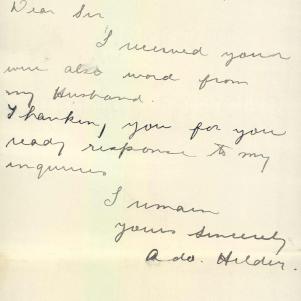 Dear Sir
I received your
wire also word from
my Husband.
Thanking you for you
ready response to my
inquiries
I remain
yours sincerely
Ado. Hilder.